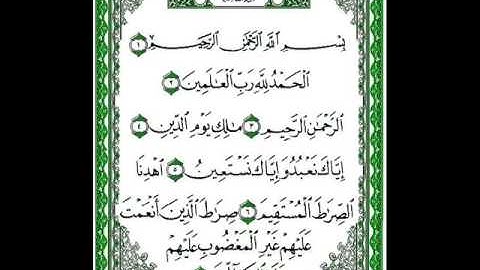 بِسْمِ اللَّهِ الرَّحْمَٰنِ الرَّحِيمِ ١
الْحَمْدُ لِلَّهِ رَبِّ الْعَالَمِينَ ٢
الرَّحْمَٰنِ الرَّحِيمِ ٣ مَٰلِكِ يَوْمِ الدِّينِ ٤
إِيَّاكَ نَعْبُدُ وَإِيَّاكَ نَسْتَعِينُ ٥ اهْدِنَا
الصِّرَٰطَ الْمُسْتَقِيمَ ٦ صِرَٰطَ الَّذِينَ أَنْعَمْتَ
عَلَيْهِمْ غَيْرِ الْمَغْضُوبِ عَلَيْهِمْ